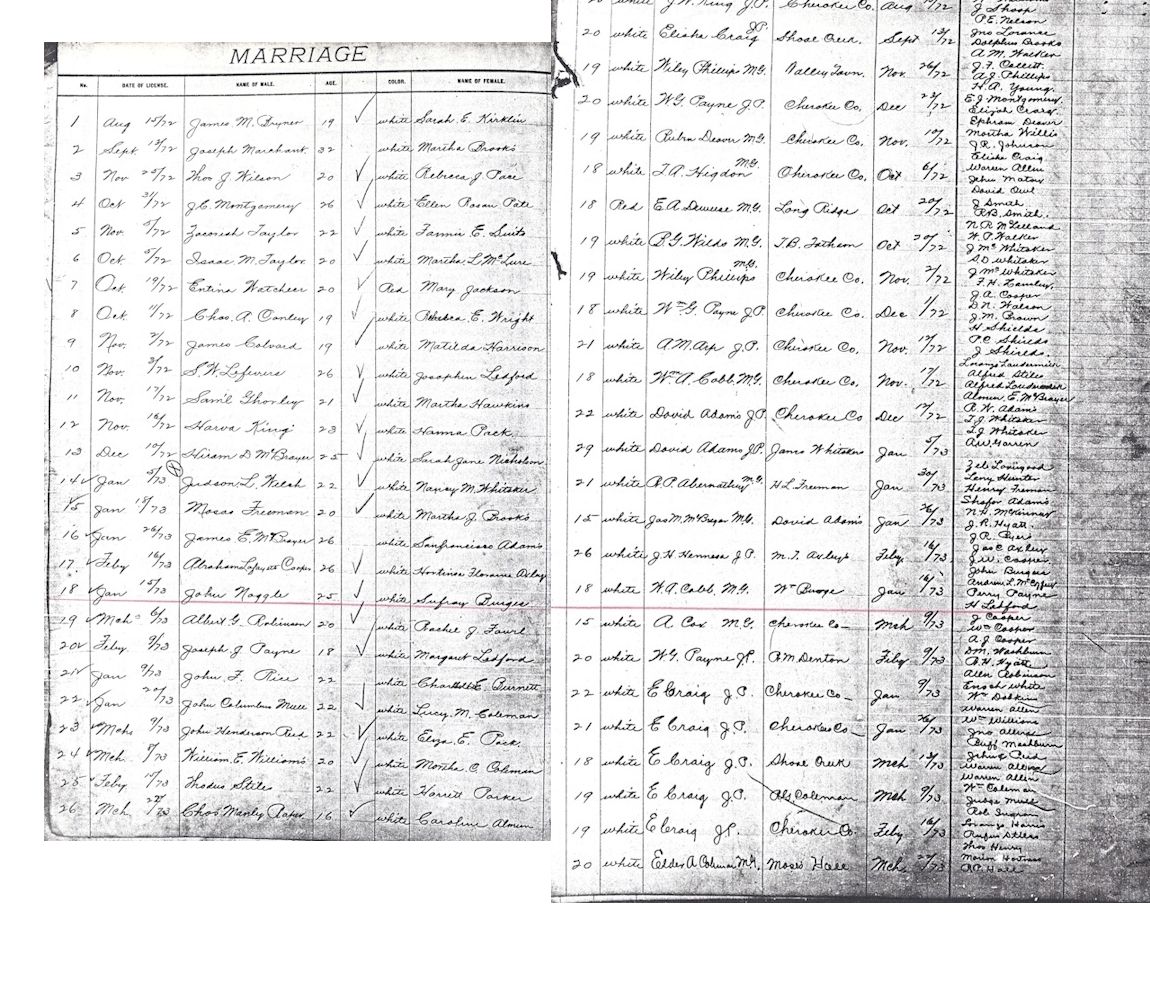 MARRIAGE
No. DATE OF LICENSE. NAME OF MALE. AGE. COLOR. NAME OF FEMALE.
1 Aug 15/72 James M. Bryner 19 white Sarah E. Kirklin
2 Sept 12/72 Joseph Marchant 32 white Martha Brooks
3 Nov 25/72 Thos J. Wilson 20 white Rebeca J Pace
4 Oct 31/72 J.C. Montgomery 26 white Ellen Rosan Pate
5 Nov. 5/72 Zacoriah Taylor 22 white Fannie E. Suits
6 Oct 5/72 Isaac M. Taylor 20 white Martha L. McLure
7 Oct 19/72 Entina Watcheer 20 Red Mary Jackson
8 Oct. 11/72 Chas. A. Conley 19 white Rebeca E. Wright
9 Nov. 2/72 James Colvard 19 white Matilda Harrison
10 Nov. 3/72 S.W. Lefevers 26 white Josephine Ledford
11 Nov. 17/72 Sam'l Ghorley 21 white Martha Hawkins
12 Nov. 16/72 Harva King 23 white Hanna Pack
13 Dec 10/72 Hiram D McBrayer 25 white Sarah Jane Nicholson
14 Jan 5/73 Judson L. Welch 22 white Nancy M. Whitaker
15 Jan 15/73 Moses Freeman 20 white Martha J. Brooks
16 Jan 26/73 James E. McBrayer 26 white Sanfrancisco Adams
17 Feby 16/73 Abraham Lafayett Cooper 26 white Hortinse Florance Axley
18 Jan 15/73 John Noggle 25 white Sufray Burges
19 Mch 6/73 Albert G. Robinson 20 white Rachel J. Fauel
20 Feby. 9/73 Joseph J Payne 18 white Margaret Ledford
21 Jan 9/73 John F. Rice 22 white Charlott E. Burnett
22 Jan 20/73 John Columbus Mull 22 white Lucy. M. Coleman
23 Mch 9/73 John Henderson Reed 22 white Eliza E. Pack.
24 Mch. 9/73 William E. Williams 20 white Martha C. Coleman
25 Feby 15/73 Thodus Stile 22 white Harrett Parker
26 Mch 22/73 Chas Manley Raper 16 white Caroline Almun
20 white J.W. King J.P. Cherokee Co. Aug 15/72 J Shoop
P.E. Nelson
20 white Elisha Craig J.P. Shoal Creek. Sept 12/72 Jno Loranse
Dolphus Brooks
A.M. Walker
19 white Wiley Phillips M.G. Valley Town. Nov. 26/72 J.F. Collett.
A.J. Phillips
H.A. Young.
20 white W.G. Payne J.P. Cherokee Co. Dec 22/72 E.J. Montgomery.
Elijah Craig
Ephram Deaver
19 white Rubn Deaver M.G. Cherokee Co. Nov, 10/72 Martha Willis
J.R. Johnson
Elisha Craig
18 white T.A. Higdon M.G. Cherokee Co, Oct 6/72 Warren Allen
John Matoy
David Owl
18 Red E.A. Deweese M.G. Long Ridge Oct 20/72 J Smith
R.B. Smith.
N.R. McLelland
19 white P.G. Wilds M.G. T.B. Fathern Oct 20/72 W.P. Walker
J Mc Whitaker
S.D. Whitaker
19 white Wiley Phillips M.G. Cherokee Co, Nov. 2/72 J Mc Whitaker
F.H. Leunley.
J.A. Cooper
18 white Wm G. Payne J.P. Cherokee Co. Dec 1/72 D.N. Watson
J.M. Brown
H Shields
21 white A.M. Arp J.P. Cherokee Co, Nov. 17/72 P.C. Shields
J Shields.
Lorenzo Laudermick
18 white Wm A. Cobb. M.G. Cherokee Co, Nov. 17/72 Alfred Stiles
Alfred Laudermick
Almun. E. McBrayer
22 white David Adams J.P. Cherokee Co Dec 12/72 R.W. Adams
T.J. Whitaker
T.J. Whitaker
29 white David Adams J.P. James Whitakers Jan 5/73 A.W. Garren
21 white A.P. Abernathy M.G. H.L. Freeman Jan 30/73 Leny Hunter
Henry Freman
Shafer Adams
15 white Jas M. McBrayer M.G. David Adams Jan 26/73 N.H. McKinney
J.R. Hyatt
J.R. Byers
26 white J.H. Hennesa J.P. M.T. Axleys Feby, 16/73 Jas C Axley
J.W. Cooper
John Burges
18 white W.A. Cobb. M.G. Wm Burge Jan 16/73 Perry Payne
H Ledford
15 white A Cox M.G. Cherokee Co— Mch 9/73 J Cooper
Wm Cooper
A.J. Cooper
20 white W.G. Payne J.P. R.M Denton Feby 9/73 D.M. Washburn
R.H. Hyatt
Allen Robinson
22 white E Craig J.P. Cherokee Co— Jan 9/73 Enoch White
Wm Dobkins
Warren Allen
21 white E Craig J.P. Cherokee Co— Jan 26/73 Wm Williams
Jno Allison
Buff Mashburn
18 white E Craig J.P. Shoal Creek Mch 12/73 John Reed
Warren Allen
Warren Allen
19 white E Craig J.P. Coleman Mch 9/73 Wm Coleman
Judge Mull
Rob Ingram
19 white E Craig J.P. Cherokee Co. Feby 16/73 Lorenzo Harris
Rufus Stiles
Thos Henry
20 white Elder A Coleman M.G. Moses Hall Mch. 27/73
A.P. Hall